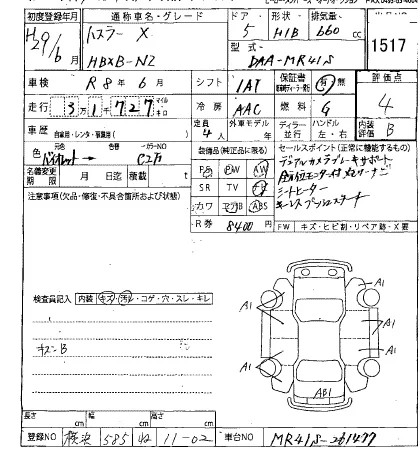 初度登録年月 通称車名・グレード ドア 形状 排気量
H29/6月 ハスラー X 5 HB 660 cc
HBXB-NZ 型式 DAA-MR41S 1517
車検 R8年6月 シフト IAT 保証書 有・無 評価点
走行 3万1千727 マイル キロ 冷房 AAC 燃料 G 4
車歴 自家用・レンタ・事業用( ) 定員 4人 外車モデル ディーラー 並行 ハンドル 左・右 内装評価 B
色 元色 色替 カラーNO バイオレット C2万
装備品(純正品に限る) セールスポイント(正常に機能するもの)
PS PW AW デュアルカメラブレーキサポート
名義変更期限 月 日迄 積載 t SR TV ナビ
注意事項(欠品・修復・不具合箇所および状態) カワ エアB ABS シートヒーター
キーレスプッシュスタート
R券 8400円 FW キズ・ヒビ割・リペア跡・X要
検査員記入 内装 キズ・汚レ・コゲ・穴・スレ・キレ
キズB
A1 A1
A1 A1
A1 A1
AB1
長さ cm 幅 cm 高さ cm
登録NO 横浜 585 ね 11-02 車台NO MR41S-261477